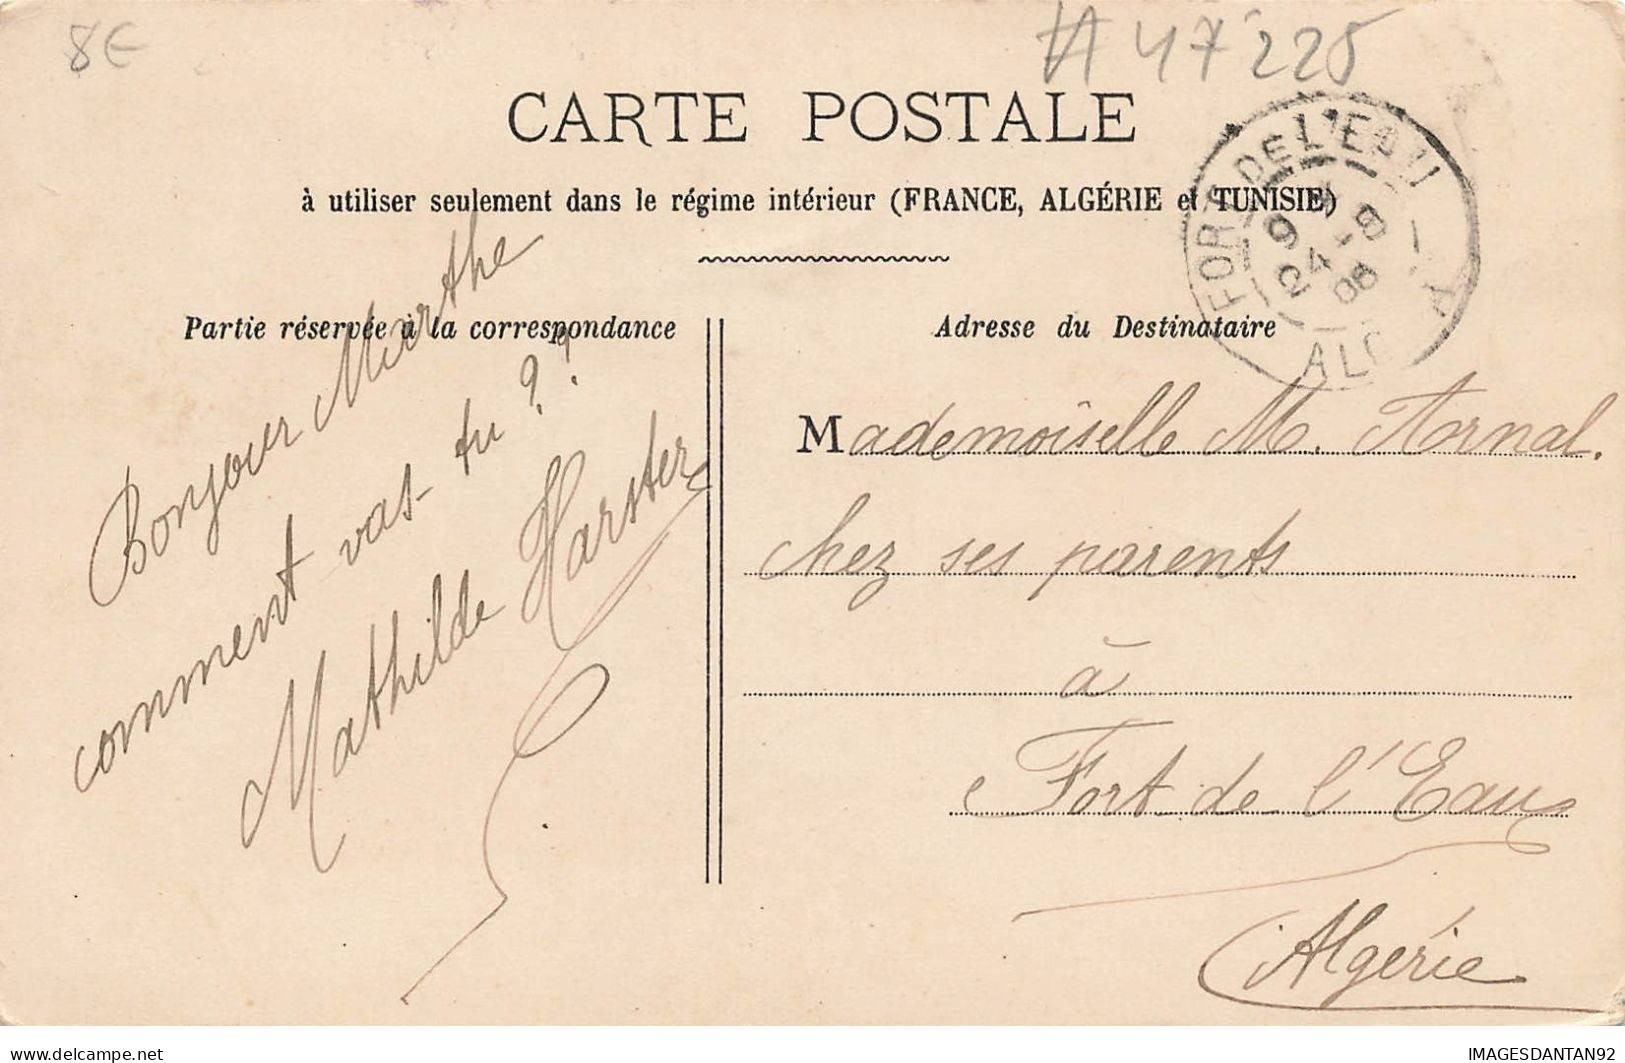 8€
A 47225
CARTE POSTALE
à utiliser seulement dans le régime intérieur (FRANCE, ALGÉRIE et TUNISIE)
FORT DE L'EAU
ALG
Partie réservée à la correspondance
Bonjour Mirthe
comment vas-tu??
Mathilde Harster
Adresse du Destinataire
Mademoiselle M. Arnal.
chez ses parents
à
Fort de l'Eau
Algérie
delcampe.net
IMAGESDANTAN92